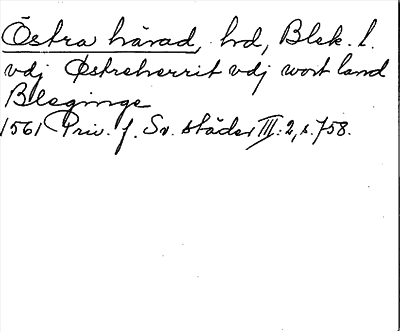 Östra härad, hd, Blek. l.
vdj Østreherrit vdj wort land
Bleginge
1561 Priv. f. Sv. städer III:2, s. 758.